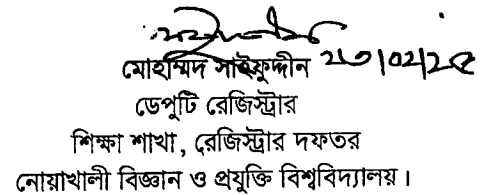 মোহাম্মদ সাইফুদ্দীন ২৩/০২/২৫
ডেপুটি রেজিস্ট্রার
শিক্ষা শাখা, রেজিস্ট্রার দফতর
নোয়াখালী বিজ্ঞান ও প্রযুক্তি বিশ্ববিদ্যালয়।